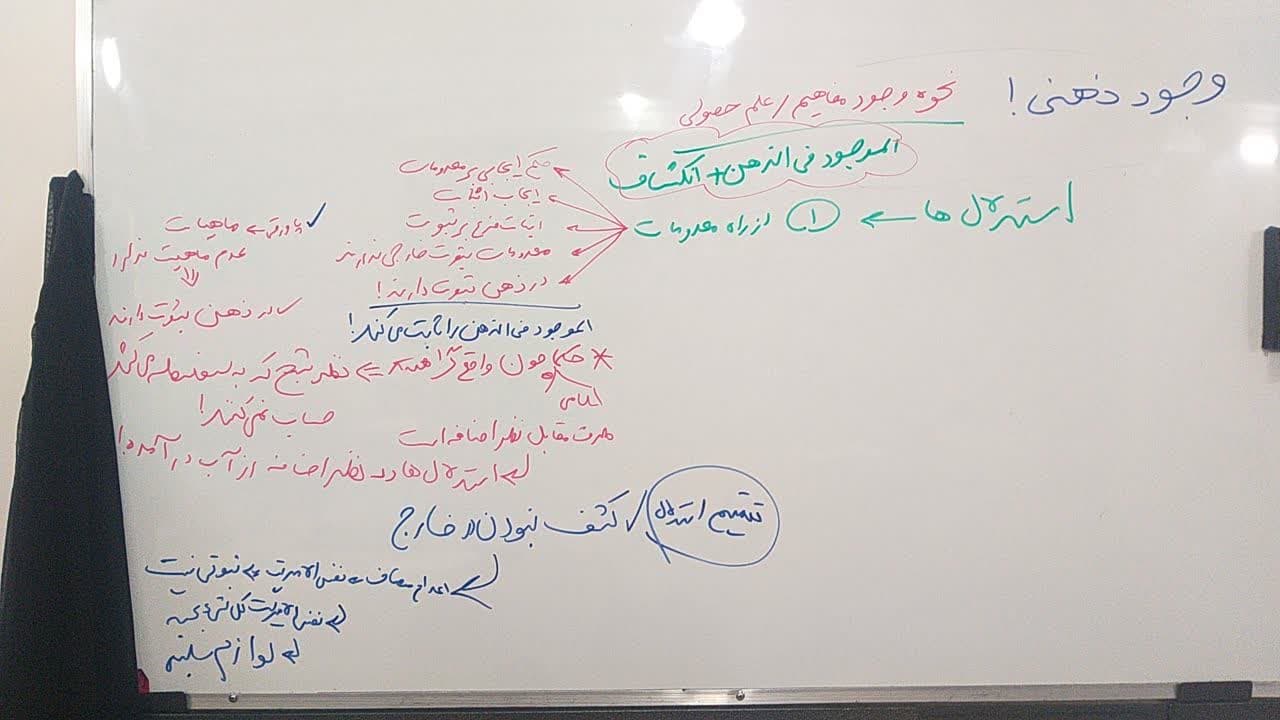 وجود ذهنی!
نحوه وجود مفاهیم / علم حصولی
الموجود فی الذهن + انکشاف
استدلال ها ← ① از راه معدومات
حکم ایجابی بر معدومات
ایجاب اثبات
اثبات فرع بر ثبوت
معدومات ثبوت خارجی ندارند
در ذهن ثبوت دارند!
الموجود فی الذهن را ثابت می کند!
✓ پاورقی ← ماهیات
عدم ماهیت ندارد
در ذهن ثبوت دارند
* حکما چون واقع گرا هستند ← نظر شبح که به سفسطه می کشد
اسلامی
حساب نمی کنند!
صرفا مقابل نظر اضافه است
← استدلال ها در نظر اضافه از آب در آمده!
تتمیم استدلال ✓ کشف نبودن در خارج
← اعدام مضاف ← نفس الامریت ← ثبوتی نیست
← نفس الامریت کل شیء بحسبه
← لوازم سلبیه